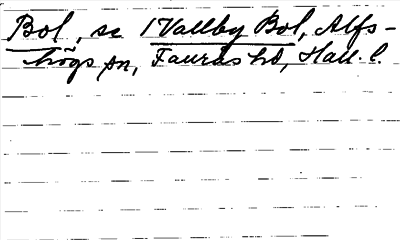 Bol, se 1 Vallby Bol, Alfs-
högs sn, Faurås hd, Hall. l.